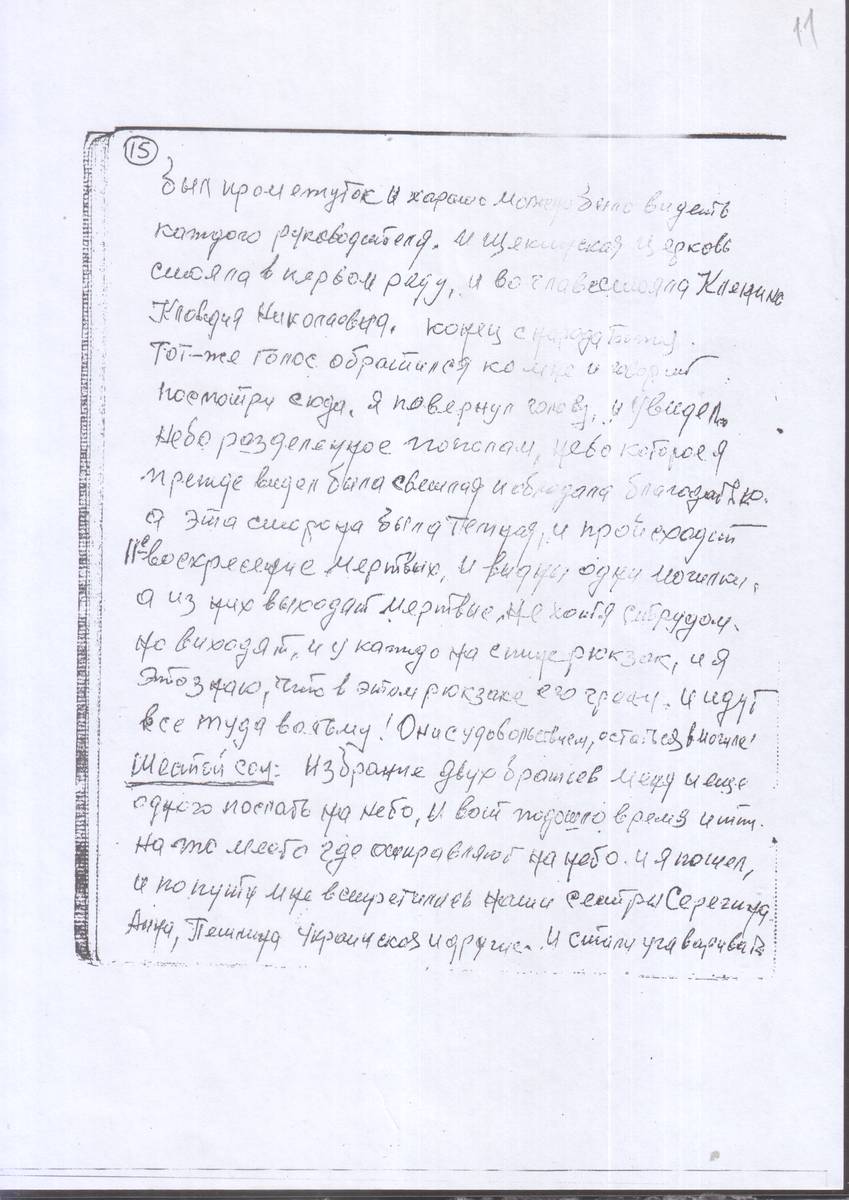 11
15
был промежуток и харашо можно было видеть
каждого руководителя. и Щекинская церковь
стояла в первом ряду, и во главе стояла
Клавдия Николаевна. конец с народа Божия.
Тот-же голос обратился ко мне и говорит
посмотри сюда. я повернул голову, и увидел
небо разделенное пополам, небо которое я
прежде видел была светлая и обладала благодатью.
а эта сторона была темная, и происходит
IIе воскресение мертвых, и видны одни могилки,
а из них выходят мертвые, не хотя с трудом.
но виходят, и у каждо на спине рюкзак, и я
это знаю, что в этом рюкзаке его грехи. и идут
все туда во тьму! Они с удовольствием, остаться в могиле!
Шестой сон: Избрание двух братьев меня и еще
одного послать на небо, и вот подошло время итти.
на то место где отправляют на небо. и я пошел,
и по пути мне встретились наши сестры Серегина
Анна, Украинская и другие. И стали угаваривать